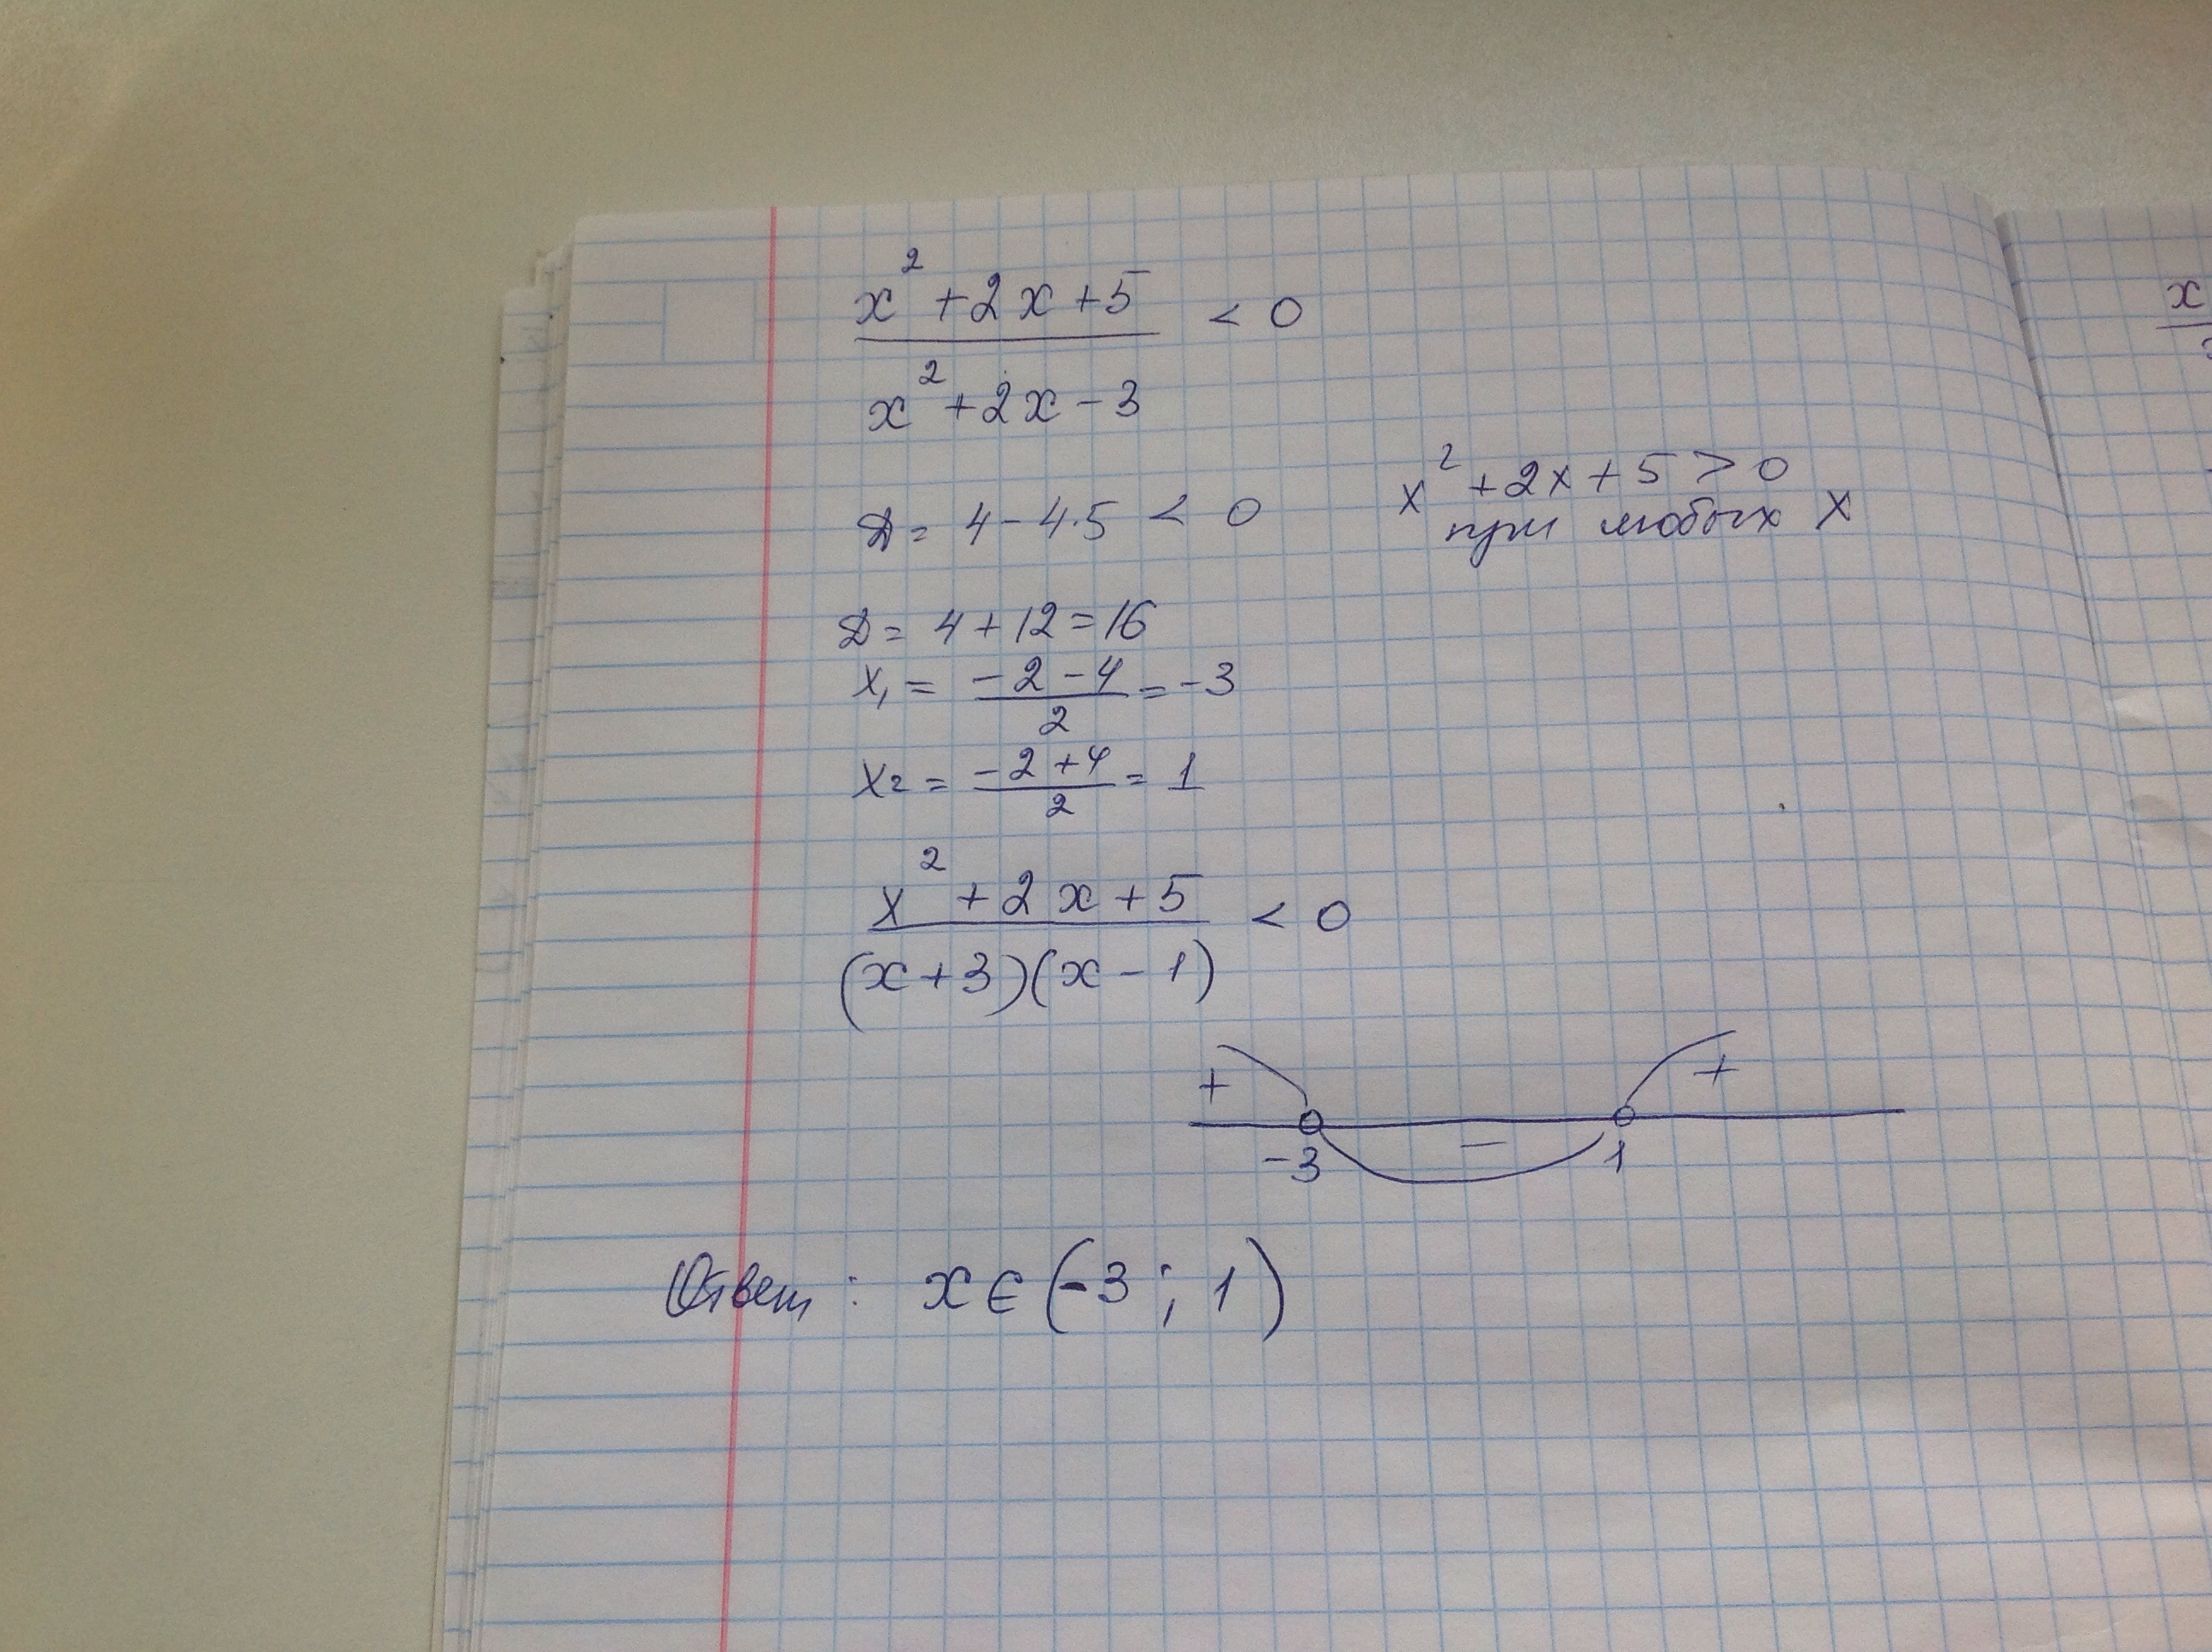 x² + 2x + 5 < 0
x² + 2x - 3
D = 4 - 4·5 < 0
x² + 2x + 5 > 0
при любых x
D = 4 + 12 = 16
x₁ = -2 - 4 = -3
2
x₂ = -2 + 4 = 1
2
x² + 2x + 5 < 0
(x + 3)(x - 1)
+ +
-
-3 1
Ответ: x ∈ (-3; 1)
x